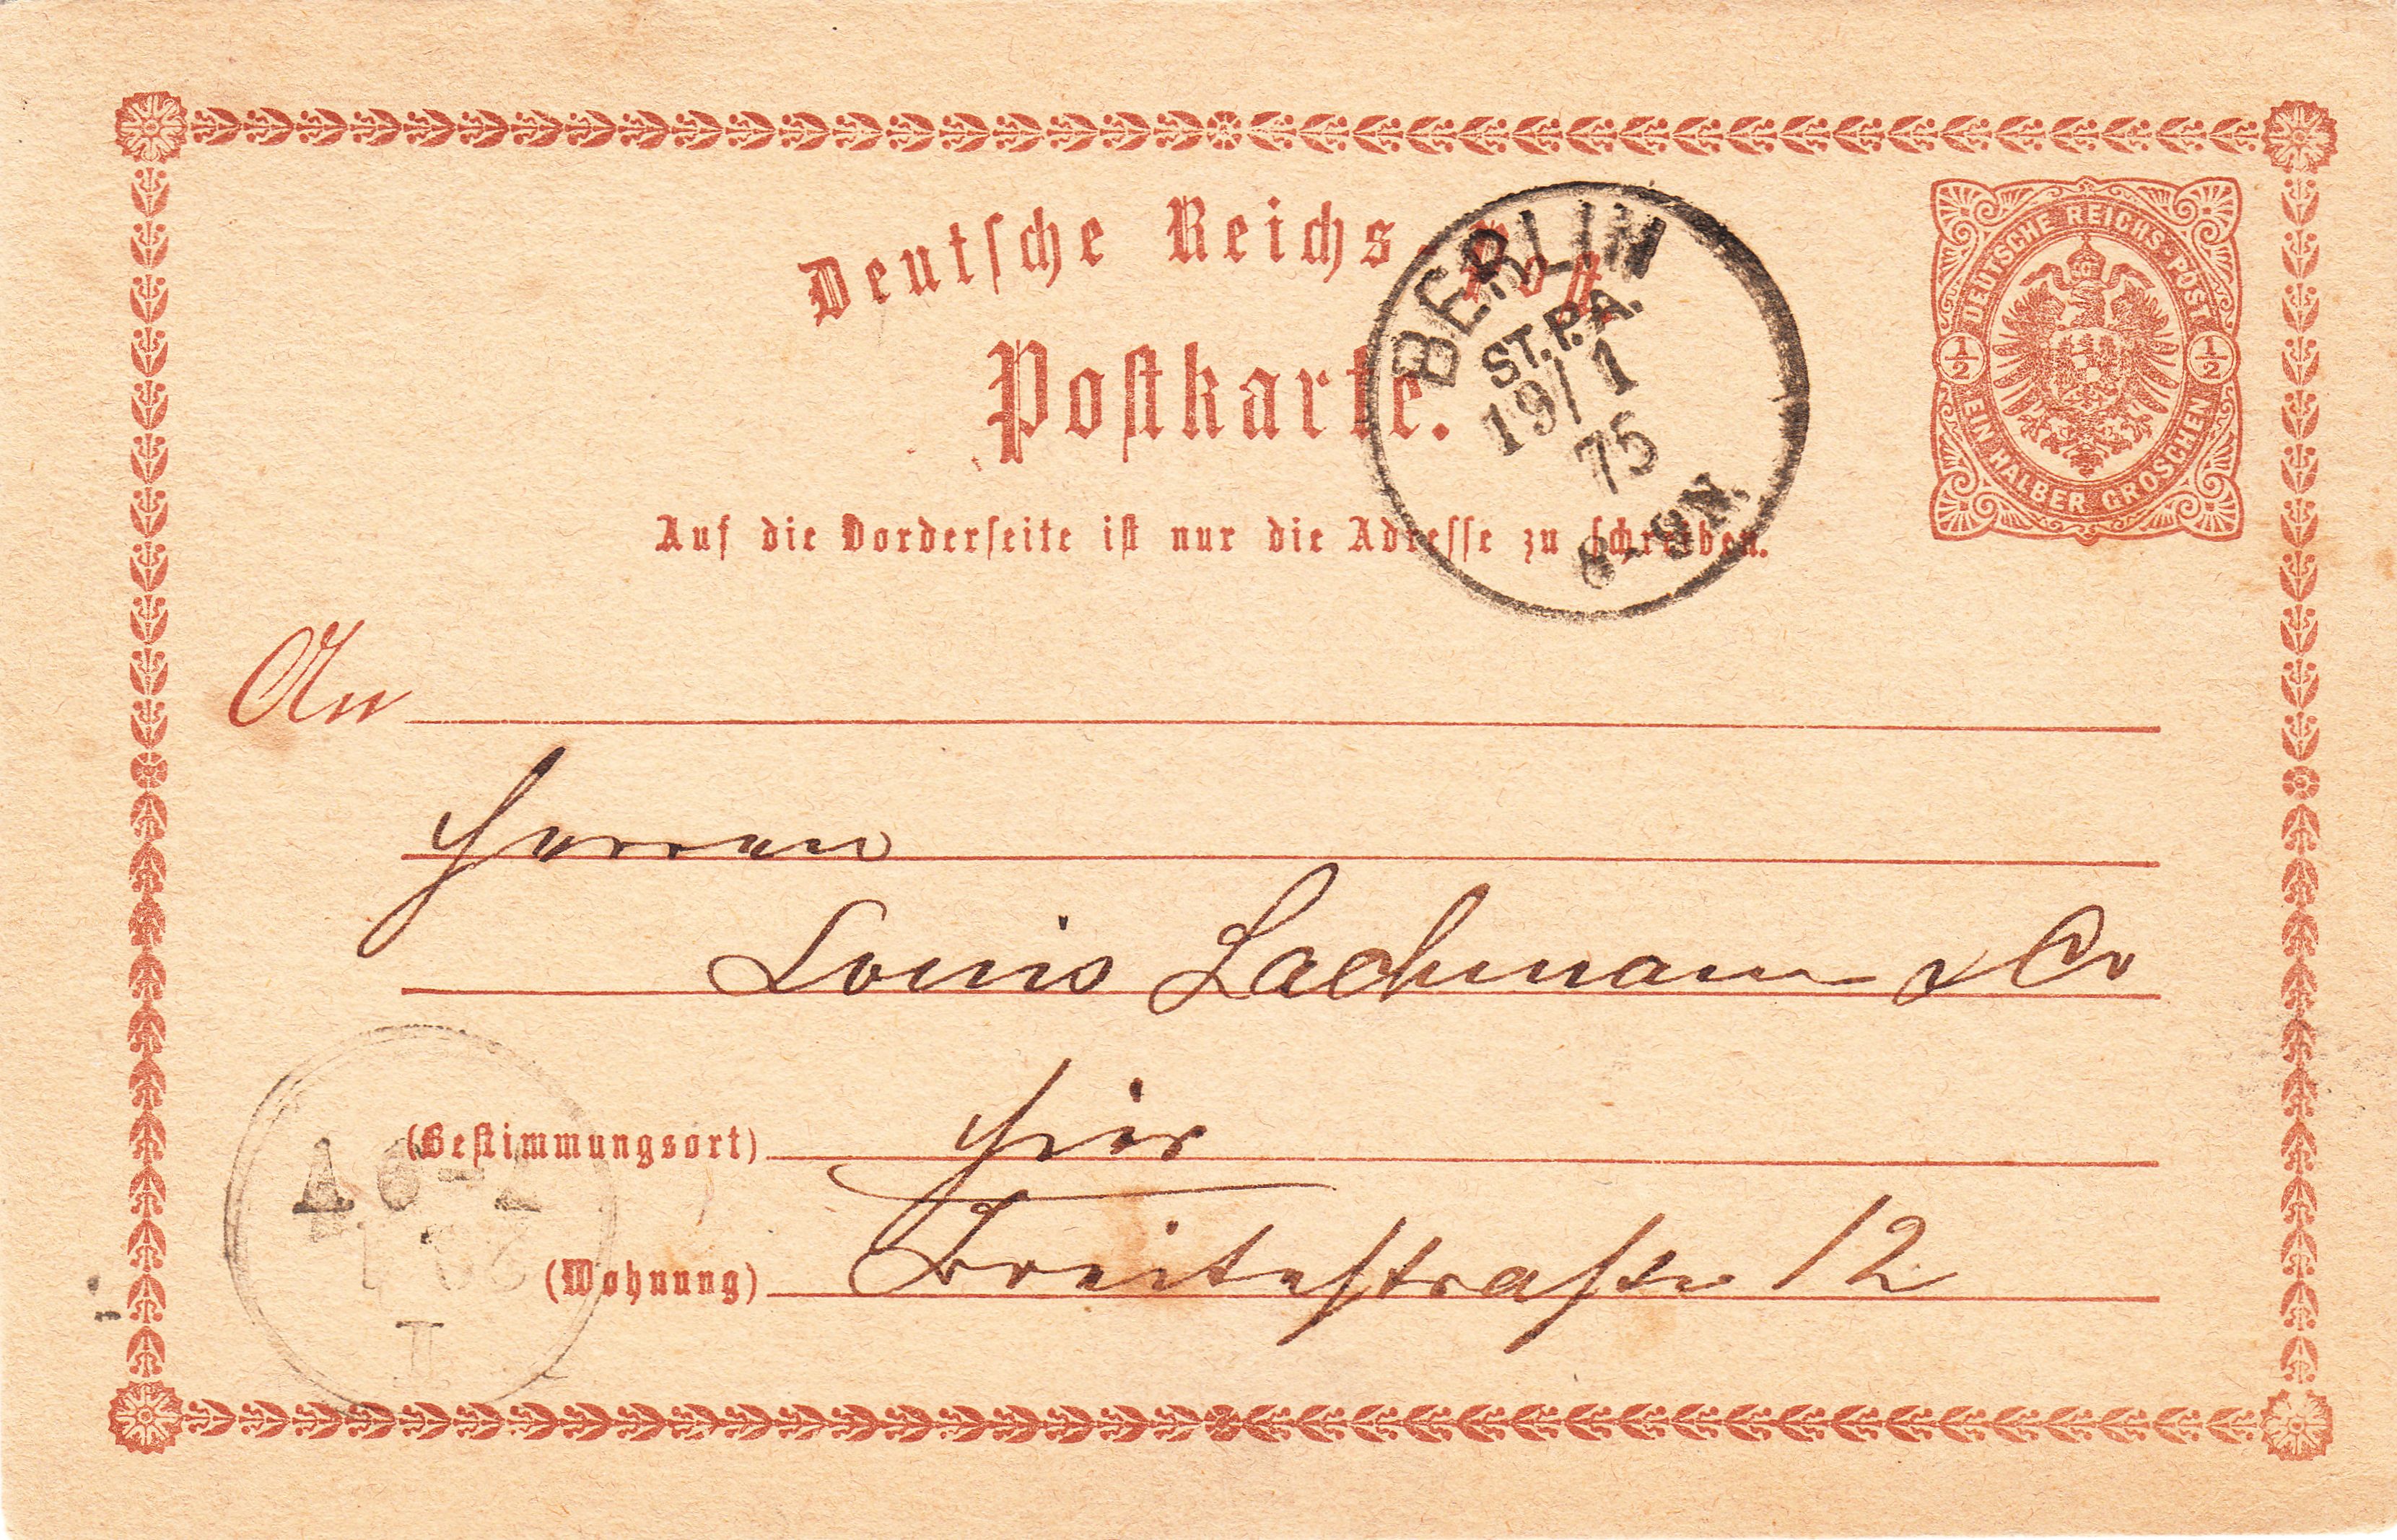 Deutsche Reichs-Post
Postkarte.
Auf die Vorderseite ist nur die Adresse zu schreiben.
DEUTSCHE REICHS-POST
1/2 1/2
EIN HALBER GROSCHEN
BERLIN
ST.P.A.
19/1
75
8-9N.
An
Herren
Louis Lachmann & Co
(Bestimmungsort) Hier
(Wohnung) Breitestraße 12
I